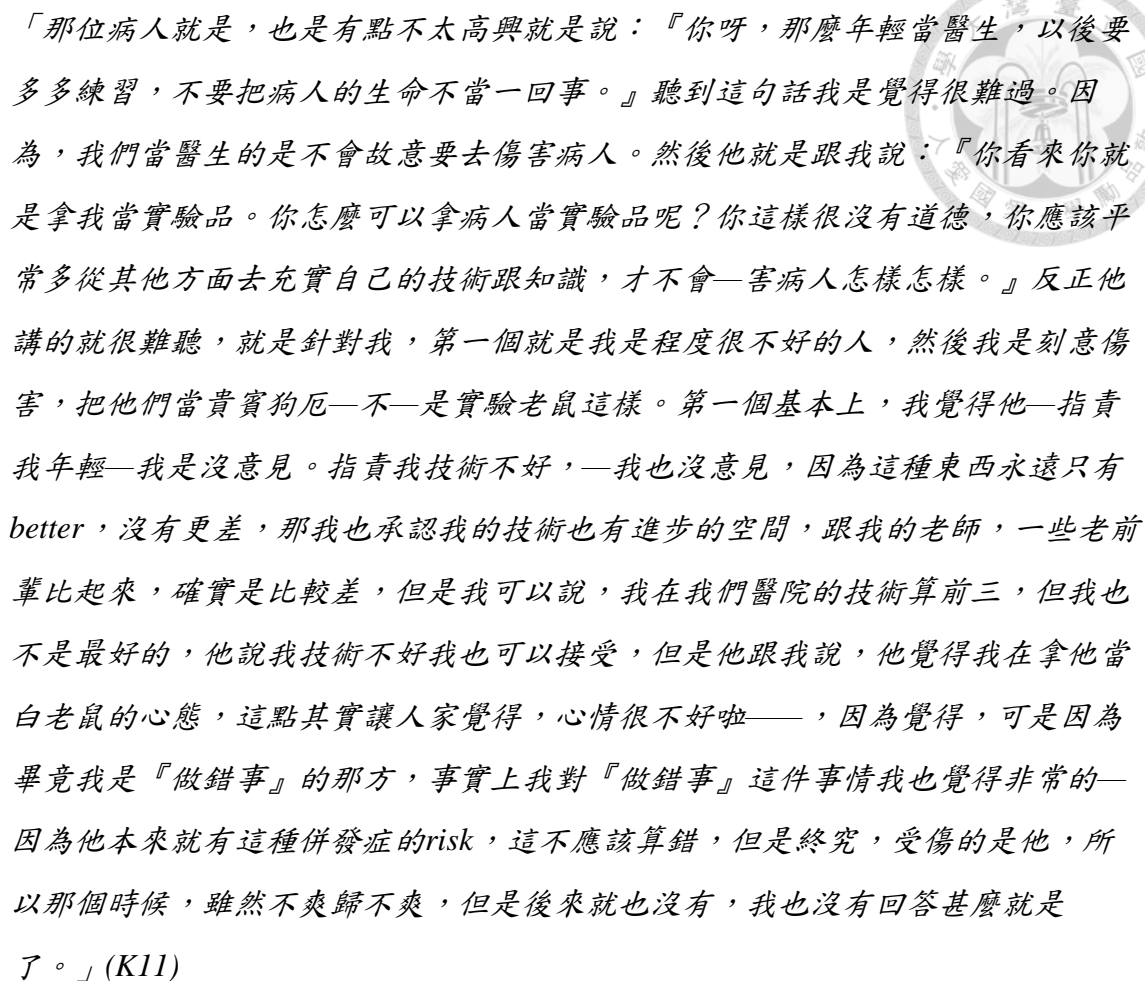 「那位病人就是，也是有點不太高興就是說：『你呀，那麼年輕當醫生，以後要
多多練習，不要把病人的生命不當一回事。』聽到這句話我是覺得很難過。因
為，我們當醫生的是不會故意要去傷害病人。然後他就是跟我說：『你看來你就
是拿我當實驗品。你怎麼可以拿病人當實驗品呢？你這樣很沒有道德，你應該平
常多從其他方面去充實自己的技術跟知識，才不會—害病人怎樣怎樣。』反正他
講的就很難聽，就是針對我，第一個就是我是程度很不好的人，然後我是刻意傷
害，把他們當貴賓狗厄—不—是實驗老鼠這樣。第一個基本上，我覺得他—指責
我年輕—我是沒意見。指責我技術不好，—我也沒意見，因為這種東西永遠只有
better，沒有更差，那我也承認我的技術也有進步的空間，跟我的老師，一些老前
輩比起來，確實是比較差，但是我可以說，我在我們醫院的技術算前三，但我也
不是最好的，他說我技術不好我也可以接受，但是他跟我說，他覺得我在拿他當
白老鼠的心態，這點其實讓人家覺得，心情很不好啦——，因為覺得，可是因為
畢竟我是『做錯事』的那方，事實上我對『做錯事』這件事情我也覺得非常的—
因為他本來就有這種併發症的risk，這不應該算錯，但是終究，受傷的是他，所
以那個時候，雖然不爽歸不爽，但是後來就也沒有，我也沒有回答甚麼就是
了。」(K11)